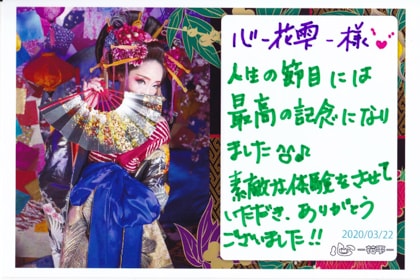 心-花雫-様
人生の節目には
最高の記念になり
ました♪
素敵な体験をさせて
いただき、ありがとう
ございました!!
2020/03/22
心-花雫-